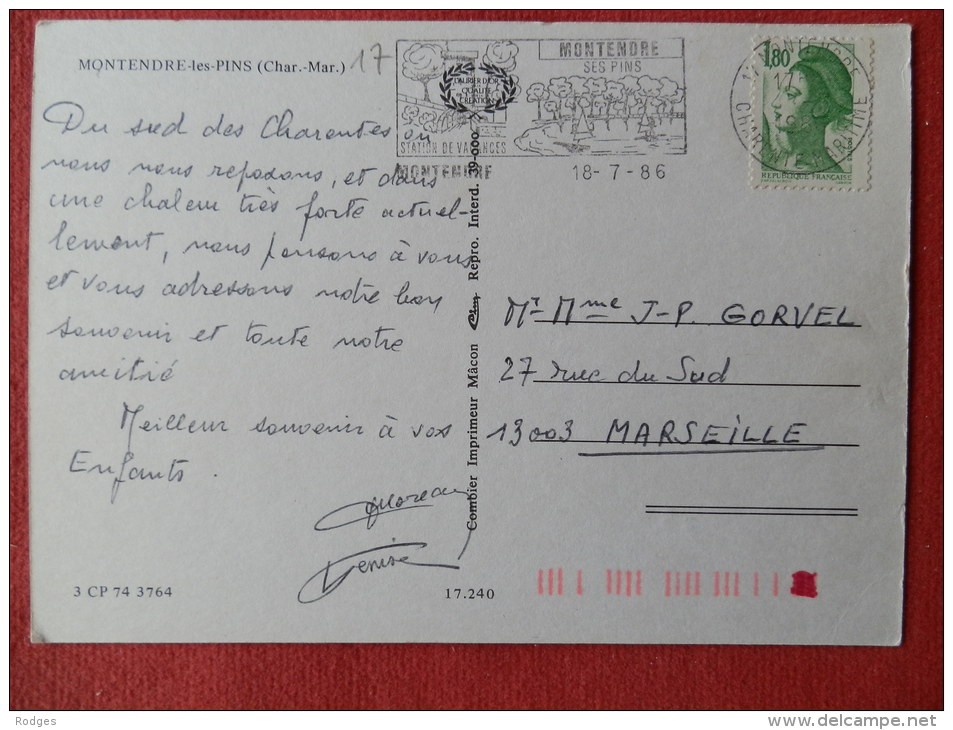 MONTENDRE-les-PINS (Char.-Mar.) 17
Du sud des Charentes où
nous nous reposons, et dans
une chaleur très forte actuel-
lement, nous pensons à vous
et vous adressons notre bon
souvenir et toute notre
amitié
Meilleur souvenir à vos
Enfants.
Denise
3 CP 74 3764
17.240
Combier Imprimeur Mâcon Repro. Interd. 39-000
STATION DE VACANCES
MONTENDRE
MONTENDRE
SES PINS
18-7-86
1,80
REPUBLIQUE FRANÇAISE
CHARENTE MARITIME
Mr Mme J-P. GORVEL
27 rue du Sud
13003 MARSEILLE
Rodges
delcampe.net